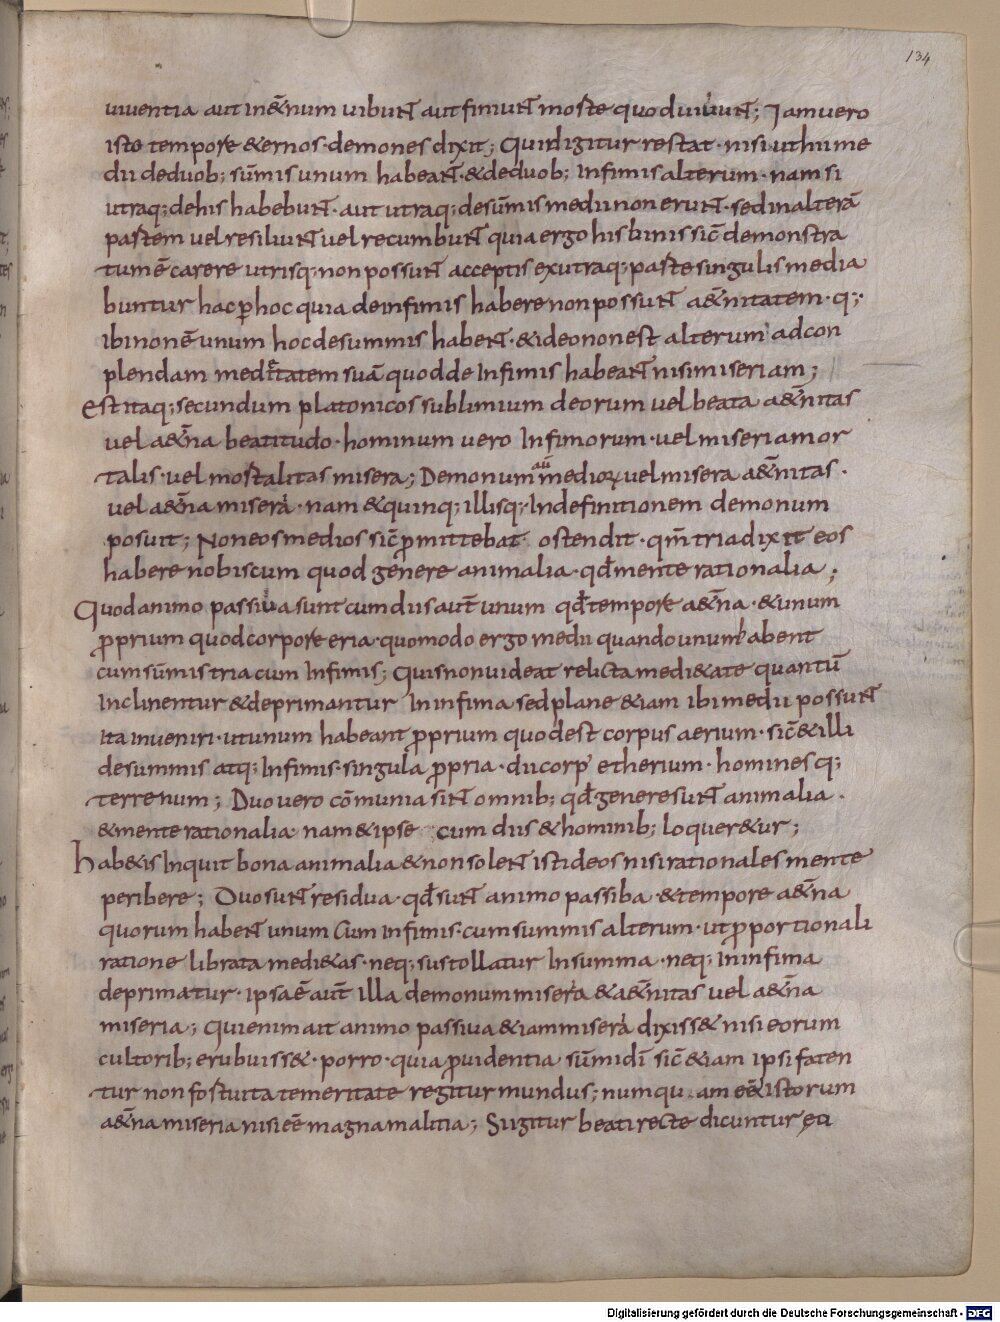 134
uiuentia aut in&̄num uibunt aut finiunt morte quod uiuunt; Iam uero
isto tempore &ernos· demones dixit; Quid igitur restat· nisi ut hii me
dii deduob; sūmis unum habeant·& deduob; Infimis alterum· nam si
utraq; dehis habebunt· aut utraq; desūmis medii non erunt· sed in alterā
partem uel resiliunt uel recumbunt quia ergo his binis sic̄ demonstra
tum ē carere utrisq; non possunt acceptis ex utraq; parte singulis media
buntur hac ꝑ hoc quia de infimis habere non possunt a&̄nitatem· q;·
ibi non ē unum hoc desummis habent·& ideo non est alterum ad con
plendam medi&atem suā quod de Infimis habeant nisi miseriam;
Est itaq; secundum platonicos sublimium deorum uel beata a&̄nitas
uel a&̄na beatitudo· hominum uero Infimorum· uel miseria mor
talis· uel mortalitas misera; Demonum aū medioꝝ uel misera a&̄nitas·
uel a&̄na misera· nam & quinq; illisq;· In definitionem demonum
posuit; Non eos medios sic̄ ꝓmittebat ostendit· qm̄ tria dixit eos
habere nobiscum quod genere animalia· qđ mente rationalia;
Quod animo passiua sunt cum diis aut̄ unum qđ tempore a&̄na·& unum
ꝓprium quod corpore eria· quomodo ergo medii quando unum habent
cum sūmis tria cum Infimis; Quis non uideat relicta medi&ate quantū
Inclinentur & deprimantur In infima sed plane &iam ibi medii possunt
ita inueniri· ut unum habeant ꝓprium quod est corpus aerium· sic̄ & illi
desummis atq; Infimis· singula ꝓpria· dii corp' etherium· homines q;
terrenum; Duo uero cōmunia sint omnib; qđ genere sunt animalia·
& mente rationalia nam & ipse cum diis & hominib; loquer&ur;
Hab&is Inquit bona animalia & non solent isti deos nisi rationales mente
peribere; Duo sunt residua· qđ sunt animo passiba·& tempore a&̄na
quorum habent unum cum infimis· cum summis alterum· ut ꝓportionali
ratione librata medi&as· neq; sustollatur In summa· neq; In infima
deprimatur· ipsa ē aut̄ illa demonum misera & a&̄nitas uel a&̄na
miseria; Qui enim ait animo passiua &iam misera dixiss& nisi eorum
cultorib; erubuiss&· porro· quia ꝓuidentia sūmi dī sic̄ &iam ipsi faten
tur non fortuita temeritate regitur mundus; numqu am ēē& istorum
a&̄na miseria nisi ēē magna malitia; Si igitur beati recte dicuntur
Digitalisierung gefördert durch die Deutsche Forschungsgemeinschaft - DFG